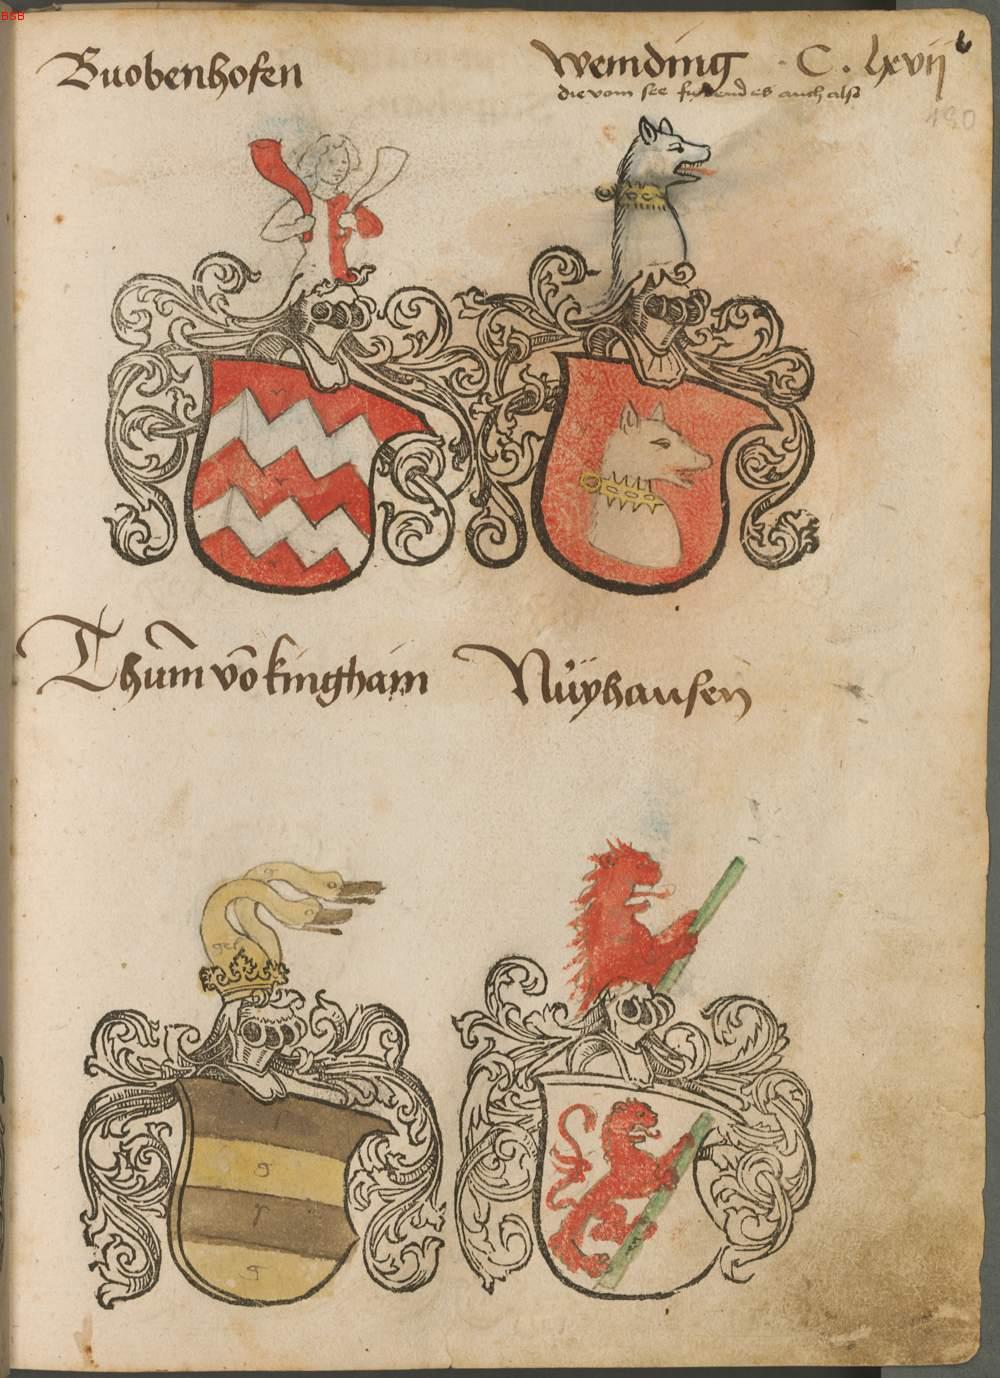 BSB
Buobenhofen
Wemding · C · lxvij
die vom see fuerend es auch also
190
Thum̄ vō kingham
Nüyhausen
gel
g
g